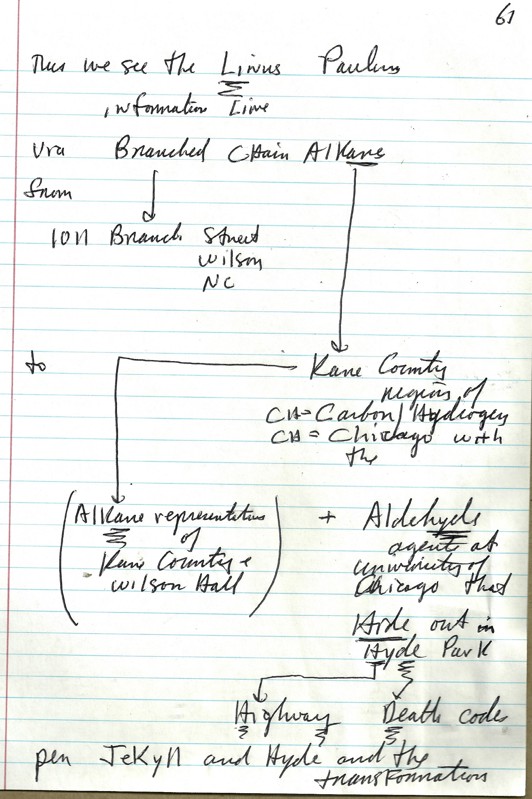 61
Thus we see the Linus Pauling
information Line
via Branched CHain AlKane
from
1011 Branch Street
Wilson
NC
to Kane County
region of
CH = Carbon / Hydrogen
CH = Chicago with
the
(AlKane representation + Aldehyde
of agent at
Kane County + university of
Wilson Hall) Chicago that
Hide out in
Hyde Park
Highway Death code
pen JeKyll and Hyde and the
transformation